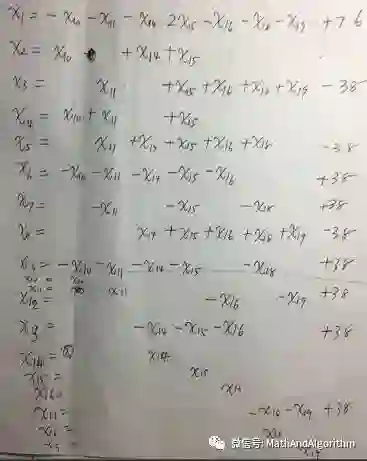 x1 = - x10 - x11 - x14 2x15 - x16 - x18 - x19 +76
x2 = x10 + x14 + x15
x3 = x11 + x15 + x16 + x18 + x19 - 38
x4 = x10 + x11 + x15
x5 = x11 + x14 + x15 + x16 + x18 -38
x6 = -x10 - x11 - x14 - x15 - x16 +38
x7 = -x11 -x15 -x18 +38
x8 = x14 + x15 + x16 + x18 + x19 -38
x9 = -x10 - x11 - x14 - x15 -x18 +38
x10 = x10
x11 = x11
x12 = -x16 -x19 +38
x13 = -x14 - x15 - x16 +38
x14 = x14
x15 = x15
x16 =
x17 = -x18 - x19 +38
x18 =
x19
微信号: MathAndAlgorithm